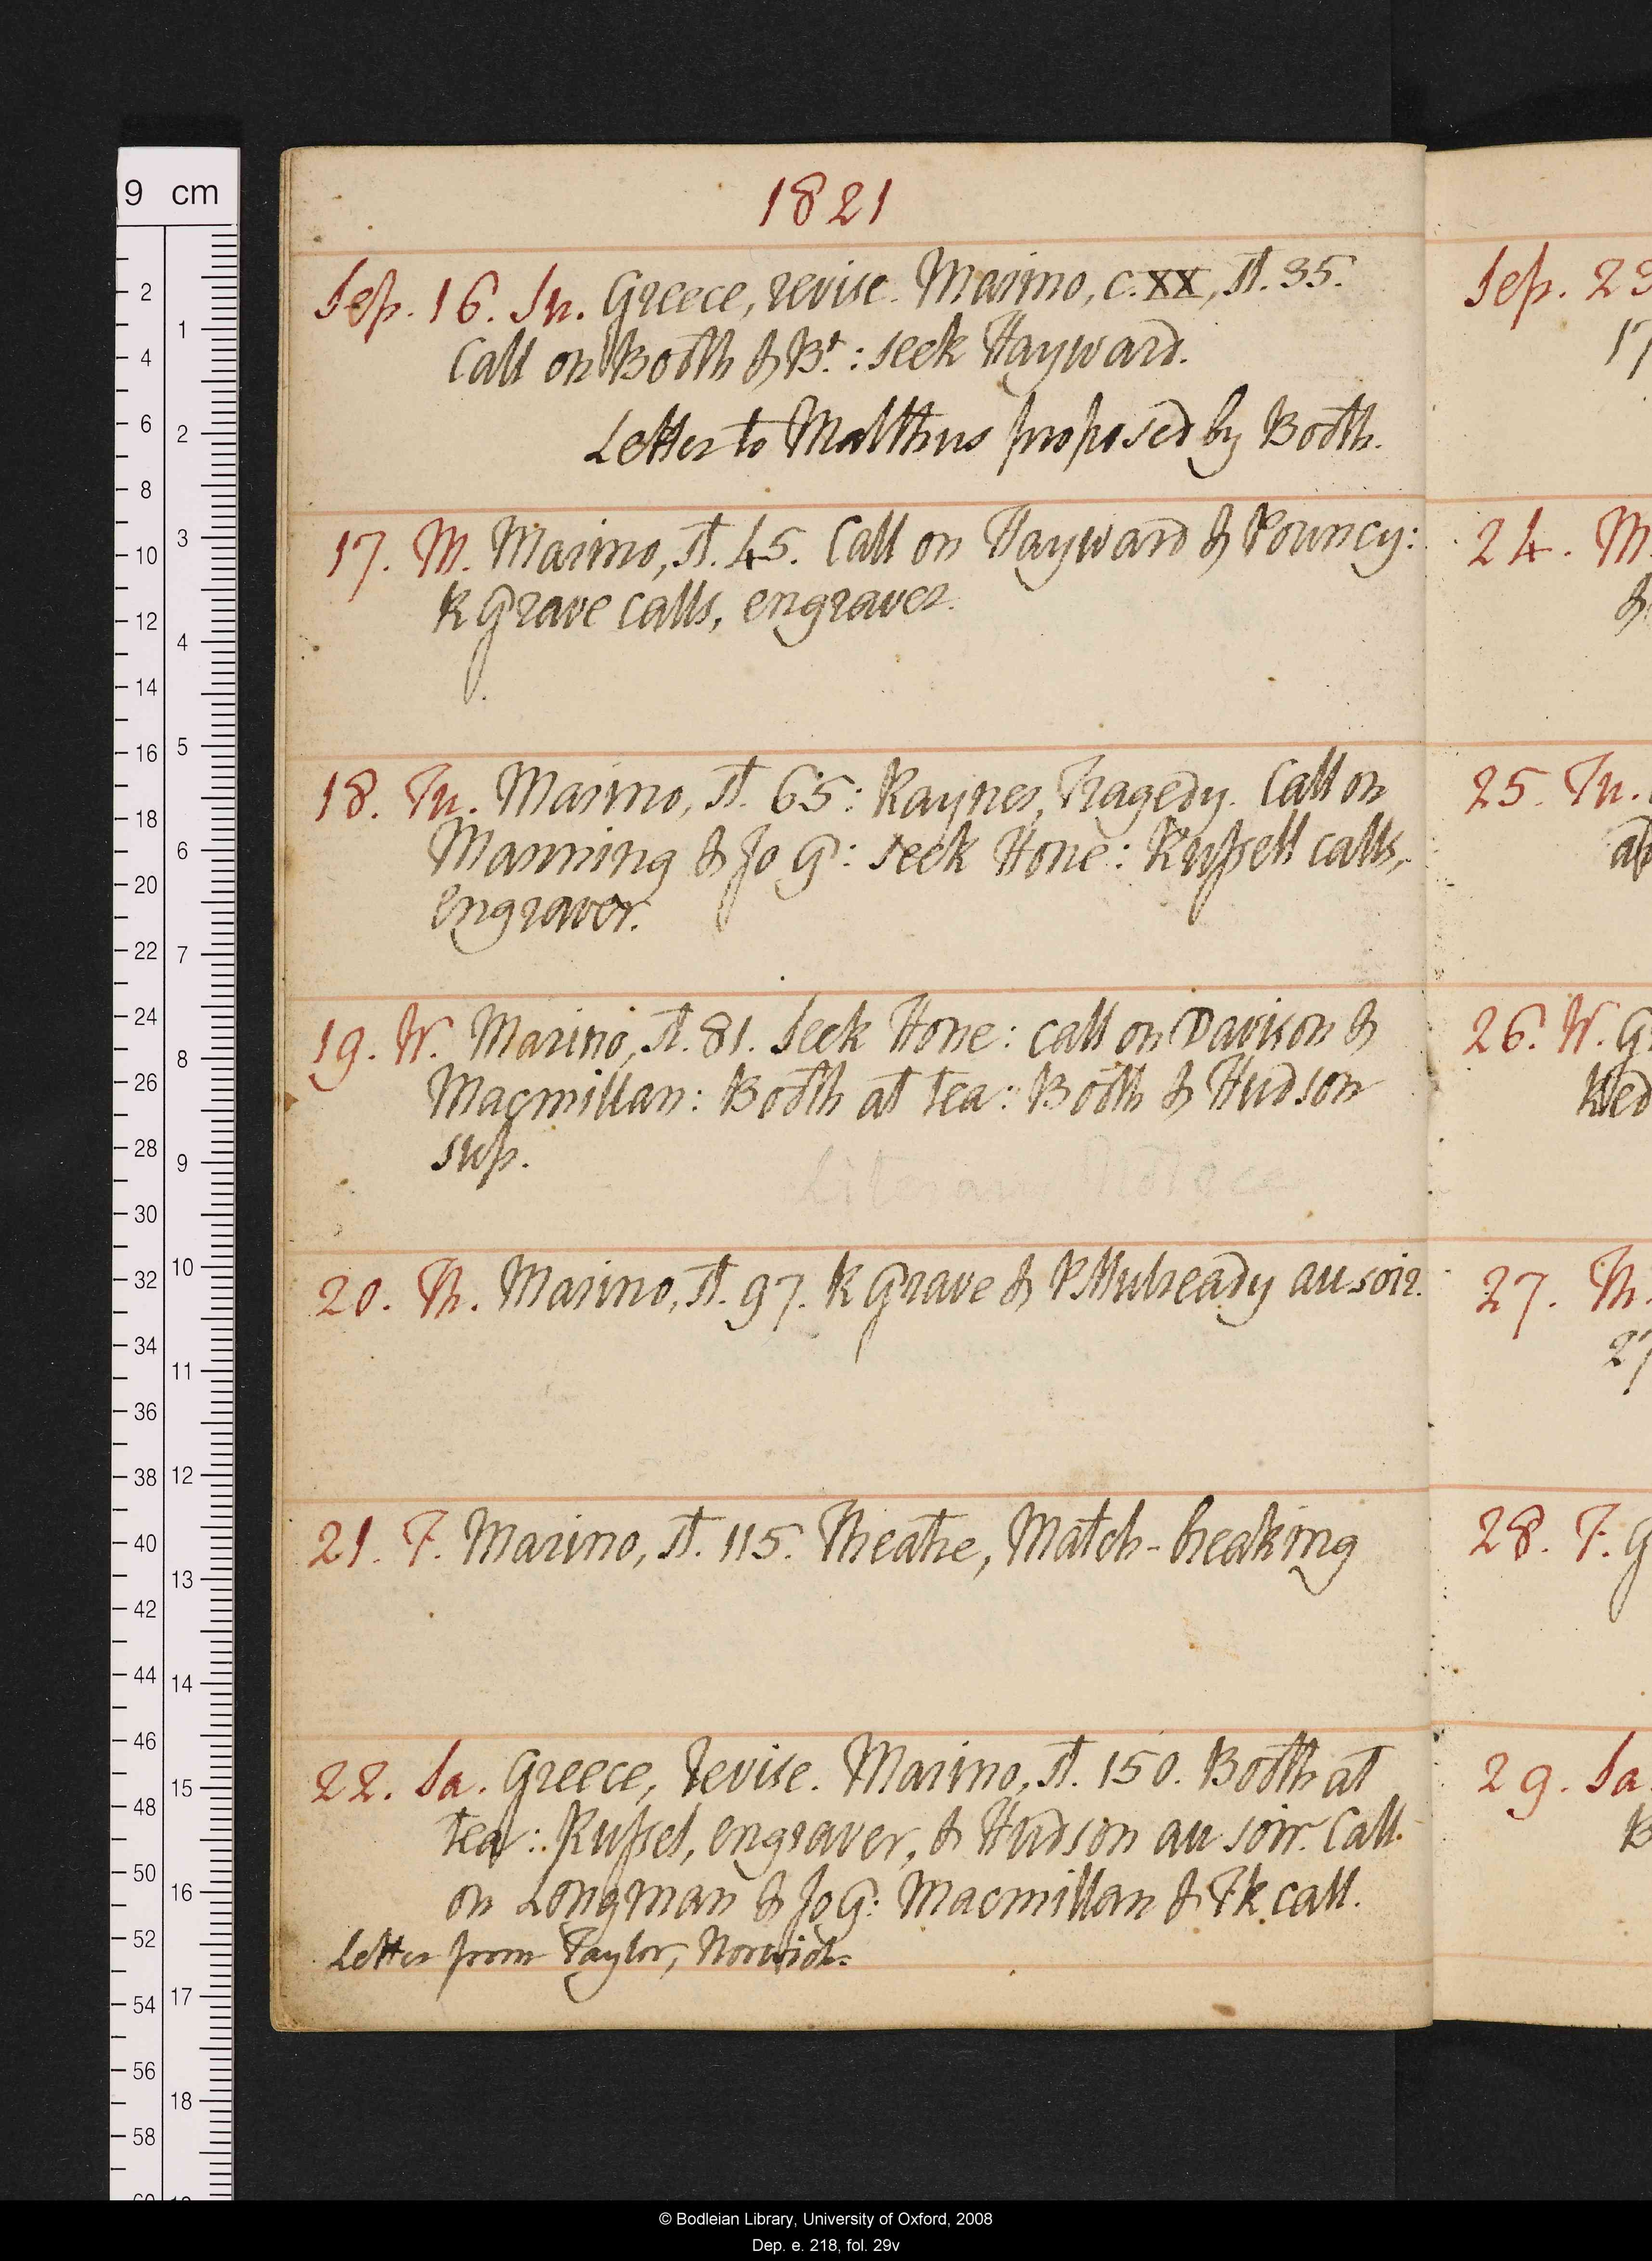 1821
Sep. 16. Su. Greece, revise. Marino, c. XX, st. 35.
Call on Booth & Bt: seek Hayward.
Letter to Malthus proposed by Booth.
17. M. Marino, st. 45. Call on Hayward & Pouncy:
K Grave calls, engraver.
18. Tu. Marino, st. 65: Raynes, Tragedy. Call on
Manning & Jo G: seek Hone: Russell calls,
engraver.
19. W. Marino, st. 81. Seek Hone: call on Davison &
Macmillan: Booth at tea: Booth & Hudson
sup.
Literary Notice
20. Th. Marino, st. 97. K Grave & P Mulready au soir.
21. F. Marino, st. 115. Theatre, Match-breaking
22. Sa. Greece, revise. Marino, st. 150. Booth at
tea: Russel, engraver, & Hudson au soir. Call
on Longman & Jo G: Macmillan & Fk call.
Letter from Taylor, Norwich.
Sep. 23
17
24. M
&
25. Tu.
26. W. G
27. Th
27
28. F. G
29. Sa
B
9 cm
2 4 6 8 10 12 14 16 18 20 22 24 26 28 30 32 34 36 38 40 42 44 46 48 50 52 54 56 58
1 2 3 4 5 6 7 8 9 10 11 12 13 14 15 16 17 18
© Bodleian Library, University of Oxford, 2008
Dep. e. 218, fol. 29v